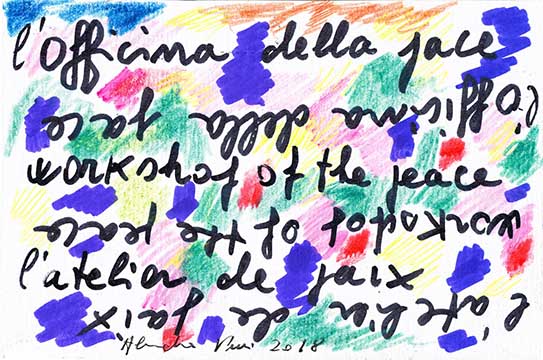 l'officina della pace
l'officina della pace
workshop of the peace
workshop of the peace
l'atelier de paix
l'atelier de paix
2018